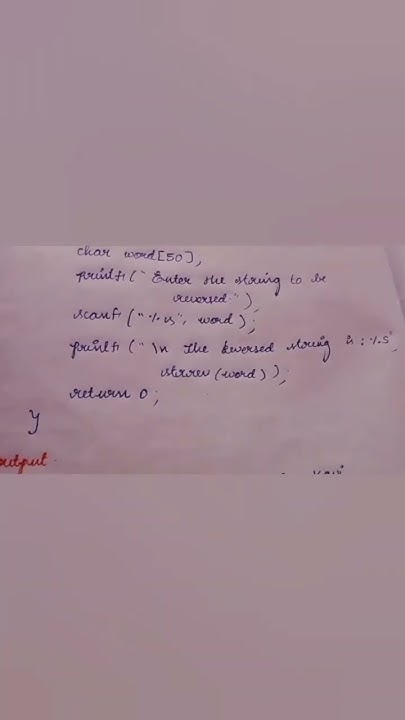 char word[50];
printf(" Enter the string to be
reversed:");
scanf("%s", word);
printf(" \n The reversed string is : %s",
strrev(word));
return 0;
}
output